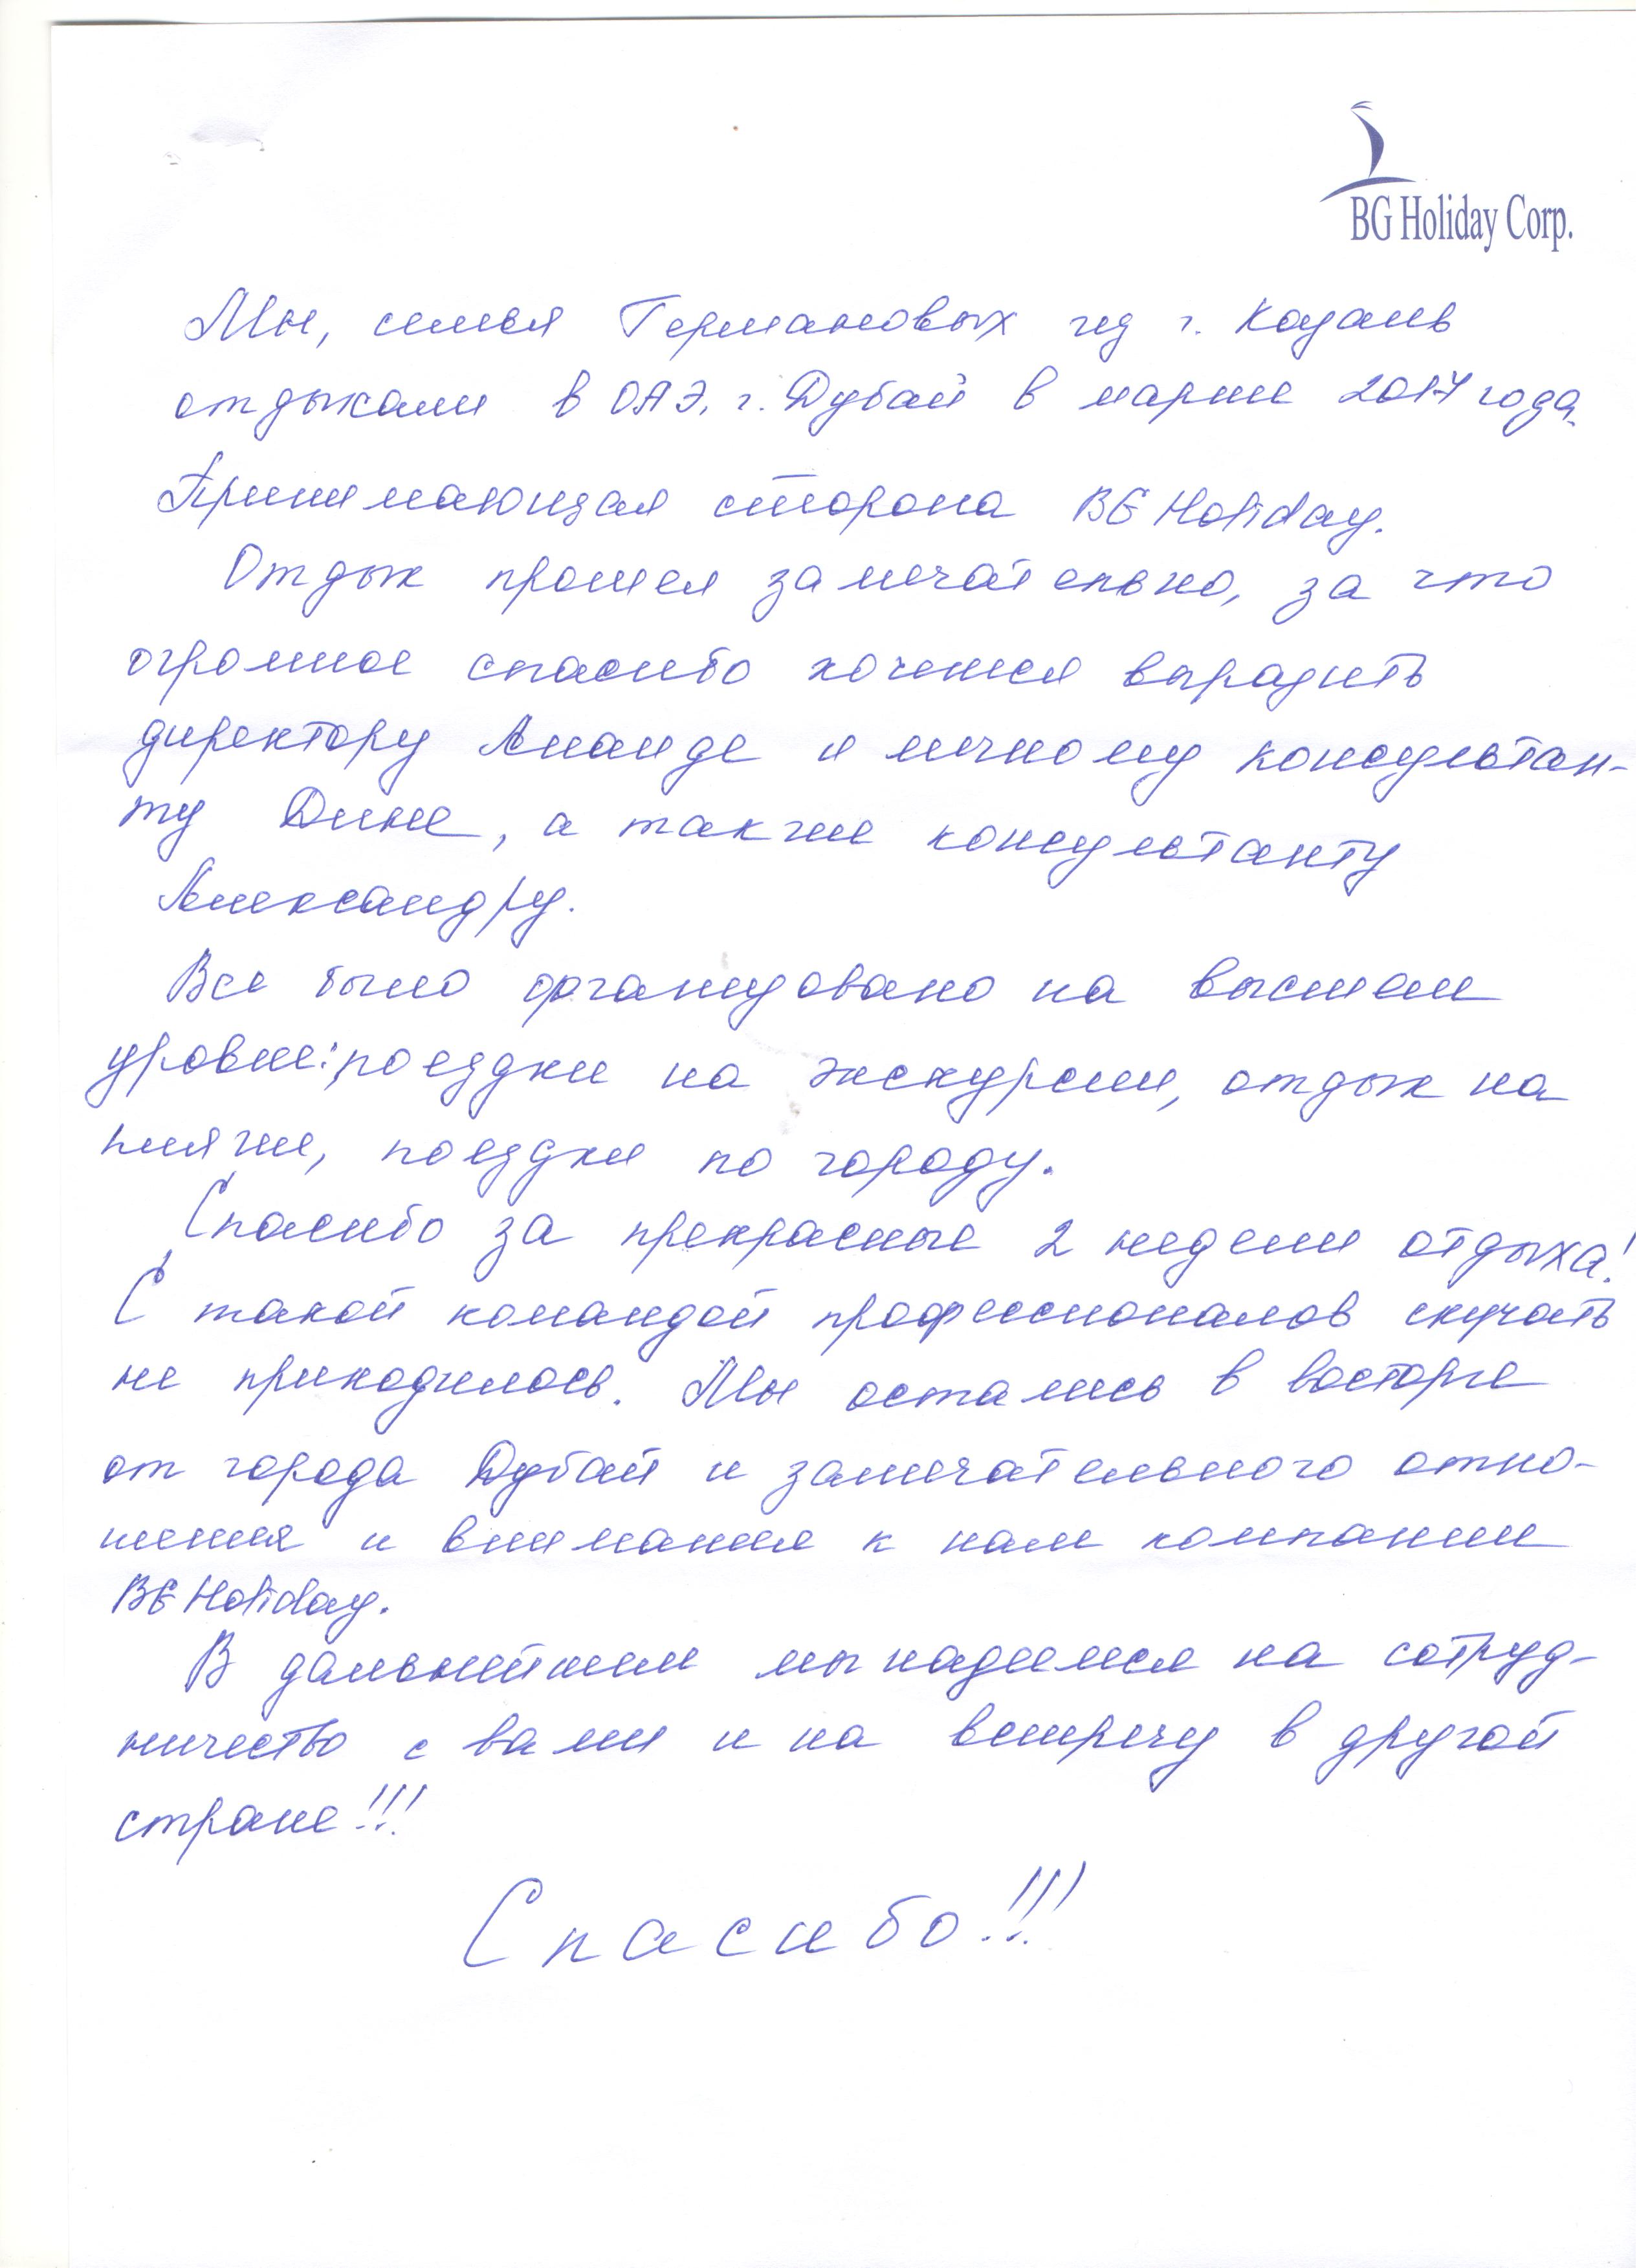 BG Holiday Corp.
Мы, семья Германовых из г. Казань
отдыхали в ОАЭ, г. Дубай в марте 2017 года.
Принимающая сторона BG Holiday.
Отдых прошел замечательно, за что
огромное спасибо хочется выразить
директору Аманде и личному консультан-
ту Дине, а также консультанту
Александру.
Все было организовано на высшем
уровне: поездки на экскурсии, отдых на
пляже, поездки по городу.
Спасибо за прекрасные 2 недели отдыха!
С такой командой профессионалов скучать
не приходилось. Мы остались в восторге
от города Дубай и замечательного отно-
шения и внимания к нам компании
BG Holiday.
В дальнейшем мы надеемся на сотруд-
ничество с вами и на встречу в другой
стране!!!
Спасибо!!!